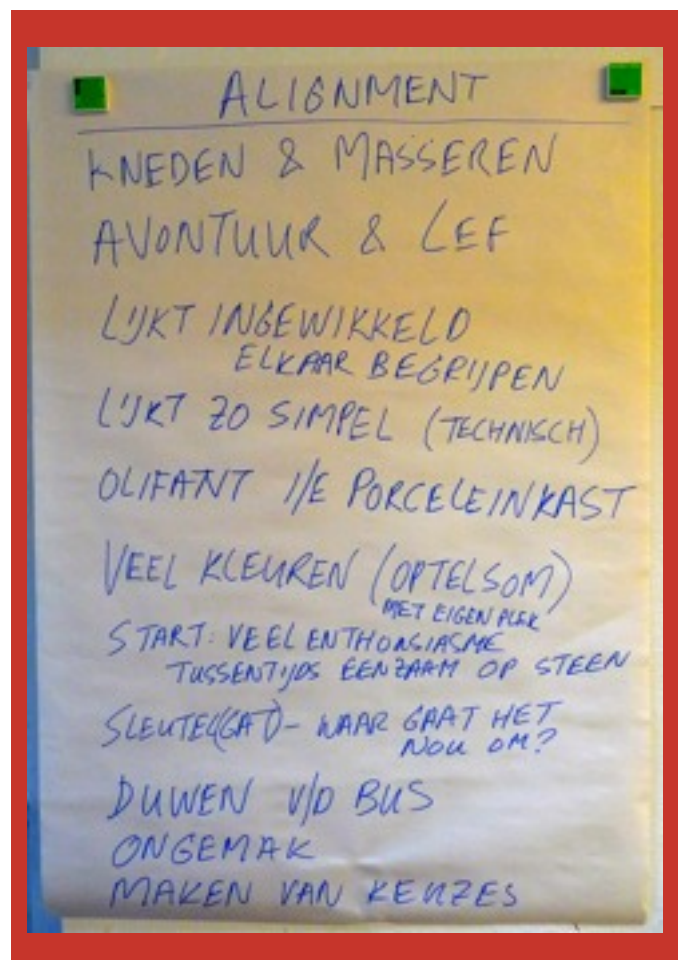 ALIGNMENT
KNEDEN & MASSEREN
AVONTUUR & LEF
LIJKT INGEWIKKELD
ELKAAR BEGRIJPEN
LIJKT ZO SIMPEL (TECHNISCH)
OLIFANT I/E PORCELEINKAST
VEEL KLEUREN (OPTELSOM)
MET EIGEN PLEK
START: VEEL ENTHOUSIASME
TUSSENTIJDS EENZAAM OP STEEN
SLEUTEL(GAT) - WAAR GAAT HET
NOU OM?
DUWEN V/D BUS
ONGEMAK
MAKEN VAN KEUZES